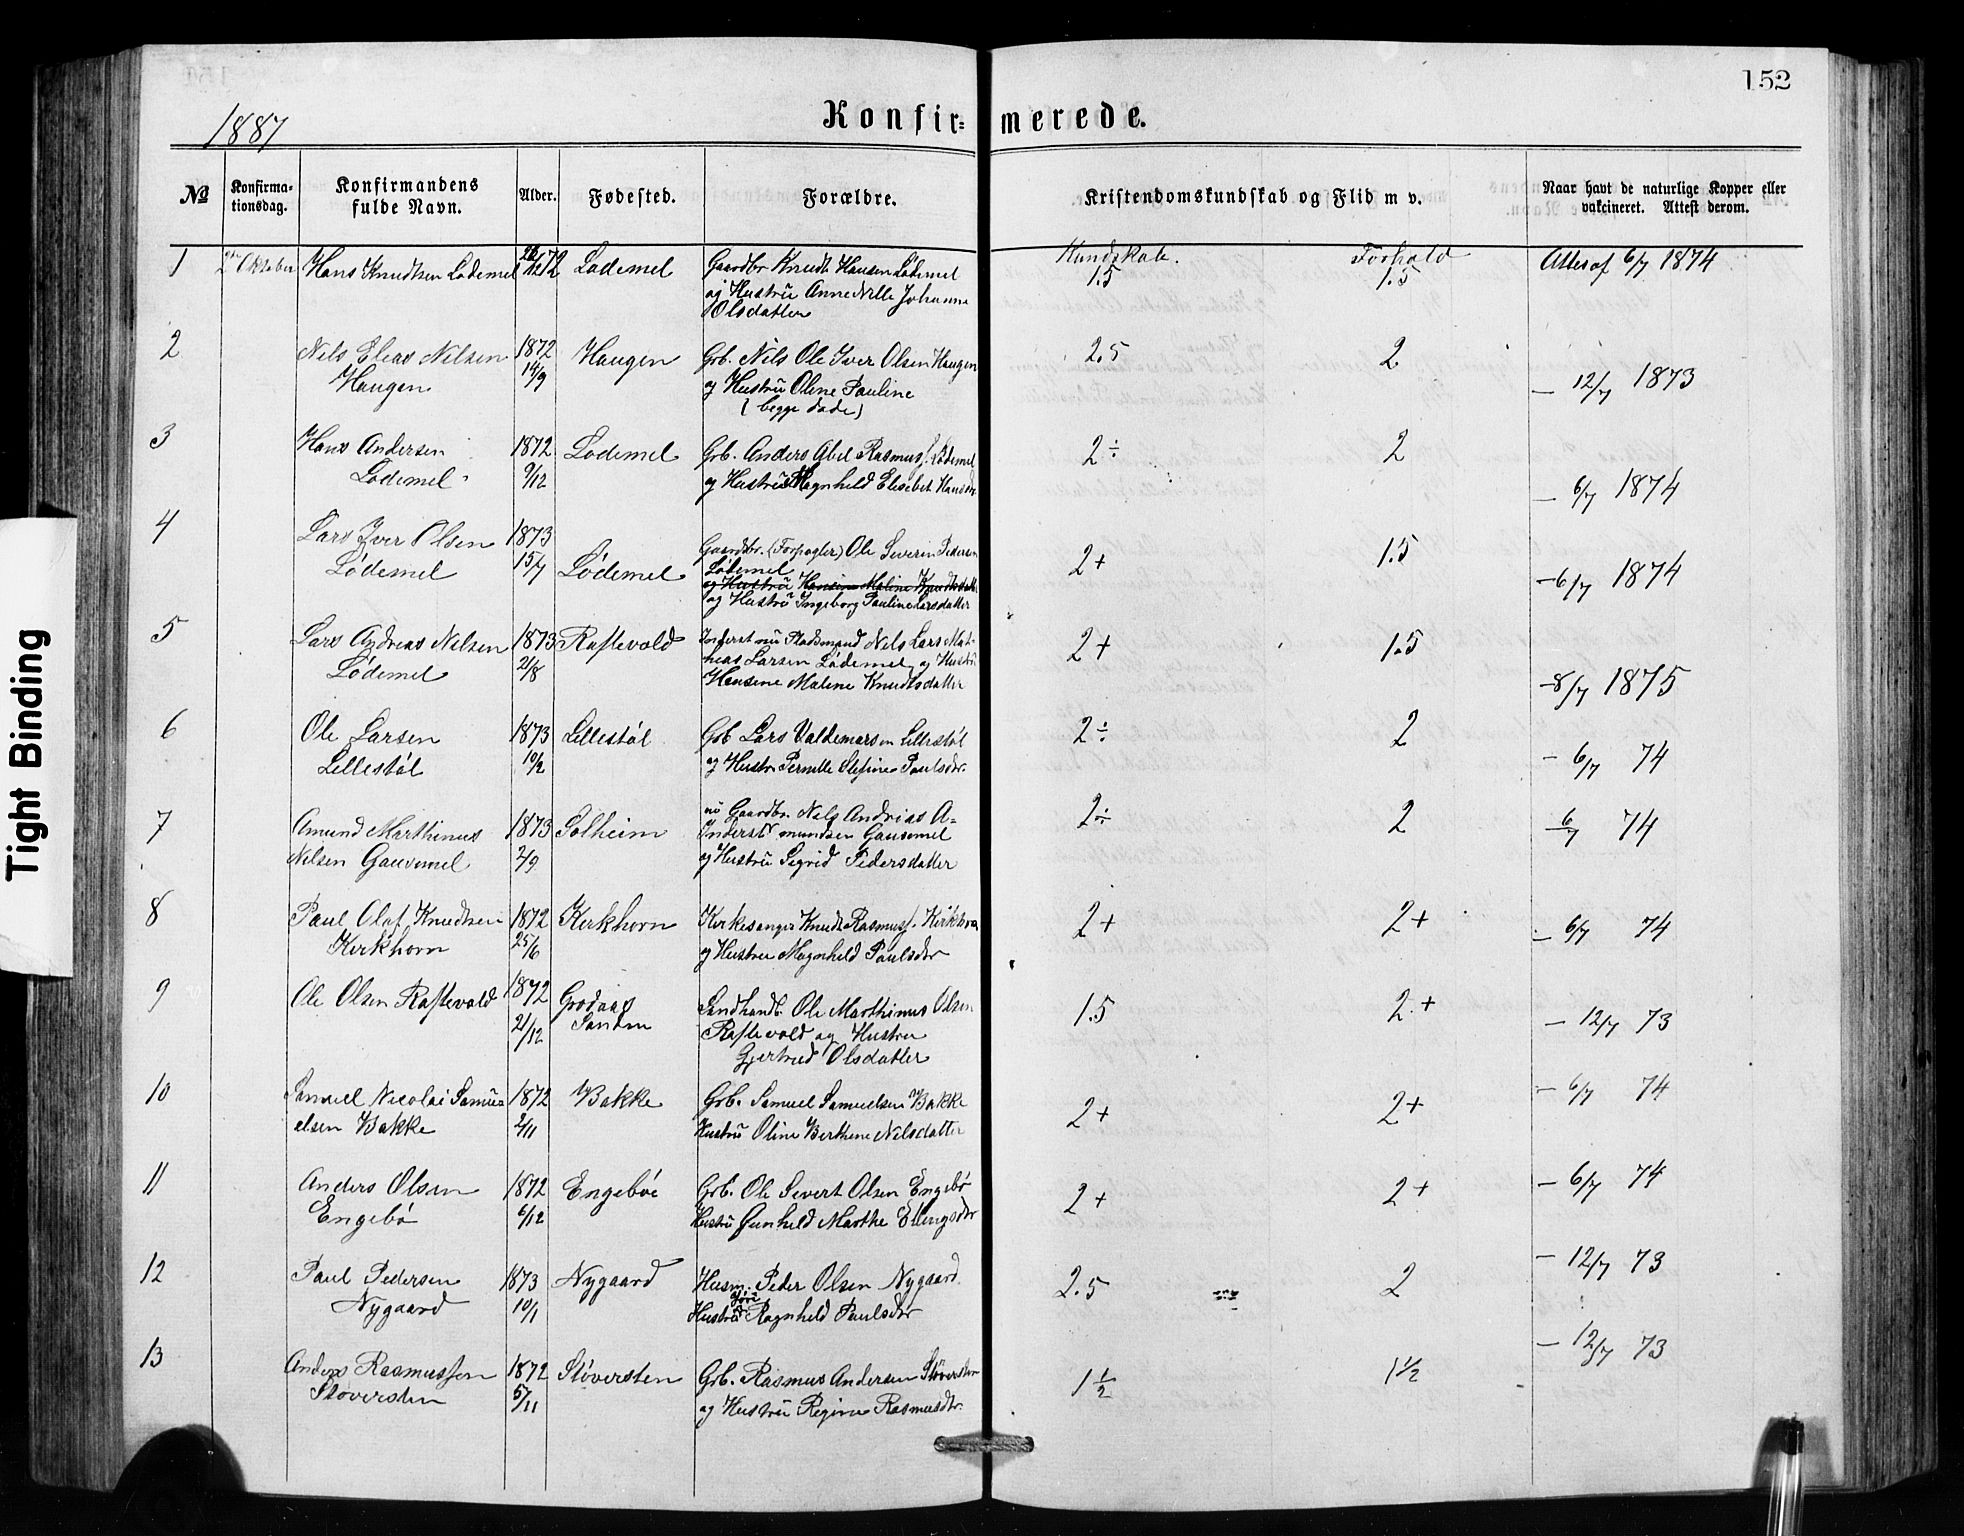 152
1887
Konfir= merede.
№ Konfirma-tionsdag. Konfirmandens fulde Navn. Alder. Fødested. Forældre. Kristendomskundskab og Flid m v. Naar havt de naturlige Kopper eller vakcineret. Attest derom.
Kundskab. Forhold
1 2den Oktober Hans Knudtsen Lødemel 26/12 72 Lødemel Gaardbr Knudt Hansen Lødemel 1.5 1.5 Attes af 6/7 1874
og Hustru Anne Nille Johanne
Olsdatter
2 Nils Elias Nilsen 1872 Haugen Grb. Nils Ole Iver Olsen Haugen 2.5 2
Haugen 14/9 og Hustru Oline Pauline — 12/7 1873
(begge døde)
3 Hans Andersen 1872 Lødemel Grb. Anders Abel Rasmuss. Lødemel 2÷ 2
Lødemel 9/12 og Hustru Magnhild Elisebet Hansdr — 6/7 1874
4 Lars Iver Olsen 1873
Gaardbr. (Forpagter) Ole Severin Pedersen
Lødemel 15/7 Lødemel Lødemel 2+ 1.5 — 6/7 1874
og Hustru Hansine Maline Knudtsdatter
og Hustru Ingeborg Pauline Larsdatter
5 Lars Andreas Nilsen 1873 Raftevold Inderst nu Pladsmand Nils Lars Mat- 2+ 1.5
Lødemel 21/8 hias Larsen Lødemel og Hustru — 8/7 1875
Hansine Maline Knudtsdatter
6 Ole Larsen 1873 Lillestøl Grb Lars Valdemarsen Lillestøl 2÷ 2 — 6/7 74
Lillestøl 10/2 og Hustr Pernille Stefine Paulsdr.
7 Amund Marthinus 1873 Solheim nu Gaardbr. Nils Andrias A= 2÷ 2 — 6/7 74
Inderst mundsen Gausemel
Nilsen Gausemel 2/9 og Hustru Sigrid Pedersdatter
8 Paul Olaf Knudtsen 1872 Kirkhorn Kirkesanger Knudt Rasmuss. Kirkhorn 2+ 2+ — 6/7 74
Kirkhorn 25/6 og Hustru Magnhild Paulsdr
9 Ole Olsen Raftevold 1872 Grodaas Landhandl. Ole Marthinus Olsen 1.5 2+ — 12/7 73
21/12 Sanden Raftevold og Hustru
Gjertrud Olsdatter
10 Samuel Nicolai Samu= 1872 Bakke Grb. Samuel Samuelsen Bakke 2+ 2+ — 6/7 74
elsen Bakke 2/11 Hustru Oline Berthine Nilsdatter
11 Anders Olsen 1872 Engebøe Grb. Ole Sivert Olsen Engebø 2+ 2+ — 6/7 74
Engebø 6/12 Hustru Gunhild Marthe Ellingsdr
12 Paul Pedersen 1873 Nygaard Husm. Peder Olsen Nygaard 2.5 2 — 12/7 73
Nygaard 10/1 Hustru Ragnhild Paulsdr
13 Anders Rasmussen 1872 Støversten Grb. Rasmus Andersen Støversten 1½ 1½ — 12/7 73
Støversten 5/11 og Hustru Regine Rasmusdtr.
Tight Binding